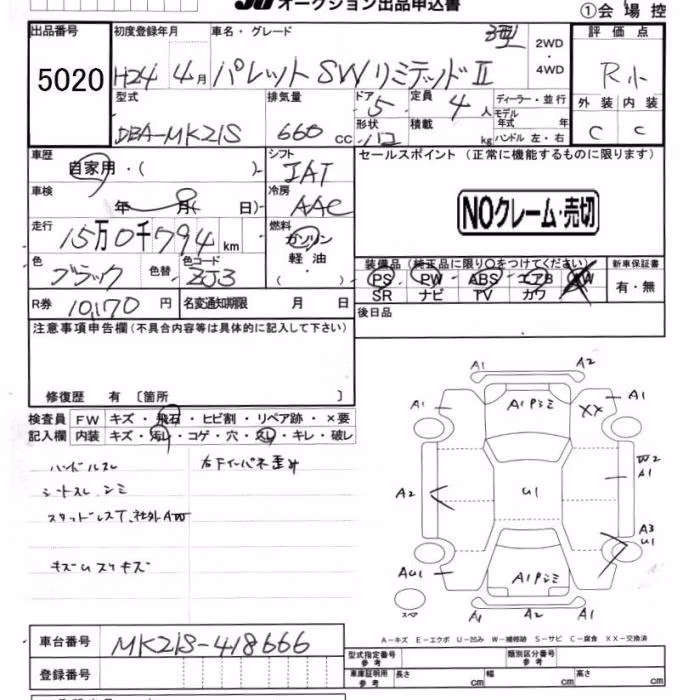 オークション出品申込書
①会場控
出品番号
5020
初度登録年月
H24年4月
車名・グレード
パレットSWリミテッドⅡ
3型
2WD
・
4WD
評価点
R小
外装 内装
C C
型式
DBA-MK21S
排気量
660cc
ドア
5
形状
バコ
定員
4人
積載
kg
ディーラー・並行
モデル年式 年
ハンドル 左・右
車歴
自家用・( )
シフト
IAT
セールスポイント (正常に機能するものに限ります)
NOクレーム・売切
車検
年 月( 日)
冷房
AAC
走行
15万0千794km
燃料
ガソリン
軽油
( )
色
ブラック
色替
色コード
ZJ3
装備品 (純正品に限り○をつけてください)
PS PW ABS エアB AW
SR ナビ TV カワ
新車保証書
有・無
R券
10,170円
名変通知期限 月 日
後日品
注意事項申告欄(不具合内容等は具体的に記入して下さい)
修復歴 有 〔箇所 〕
検査員記入欄
FW キズ・飛石・ヒビ割・リペア跡・×要
内装 キズ・汚レ・コゲ・穴・スレ・キレ・破レ
ハンドルスレ
右下インパネ歪み
シートスレ シミ
スタッドレスT、社外AW
キズ ムスリキズ
A1 A2
A1 A1Pシミ XX A1
W2
A1
A2 U1
A3
U1
AU1 A1Pシミ
スペア A1 A2 A1
A-キズ E-エクボ U-凹み W-補修跡 S-サビ C-腐食 XX-交換済
車台番号
MK21S-418666
登録番号
型式指定番号
参考
類別区分番号
参考
車庫証明用
参考
長さ cm 幅 cm 高さ cm